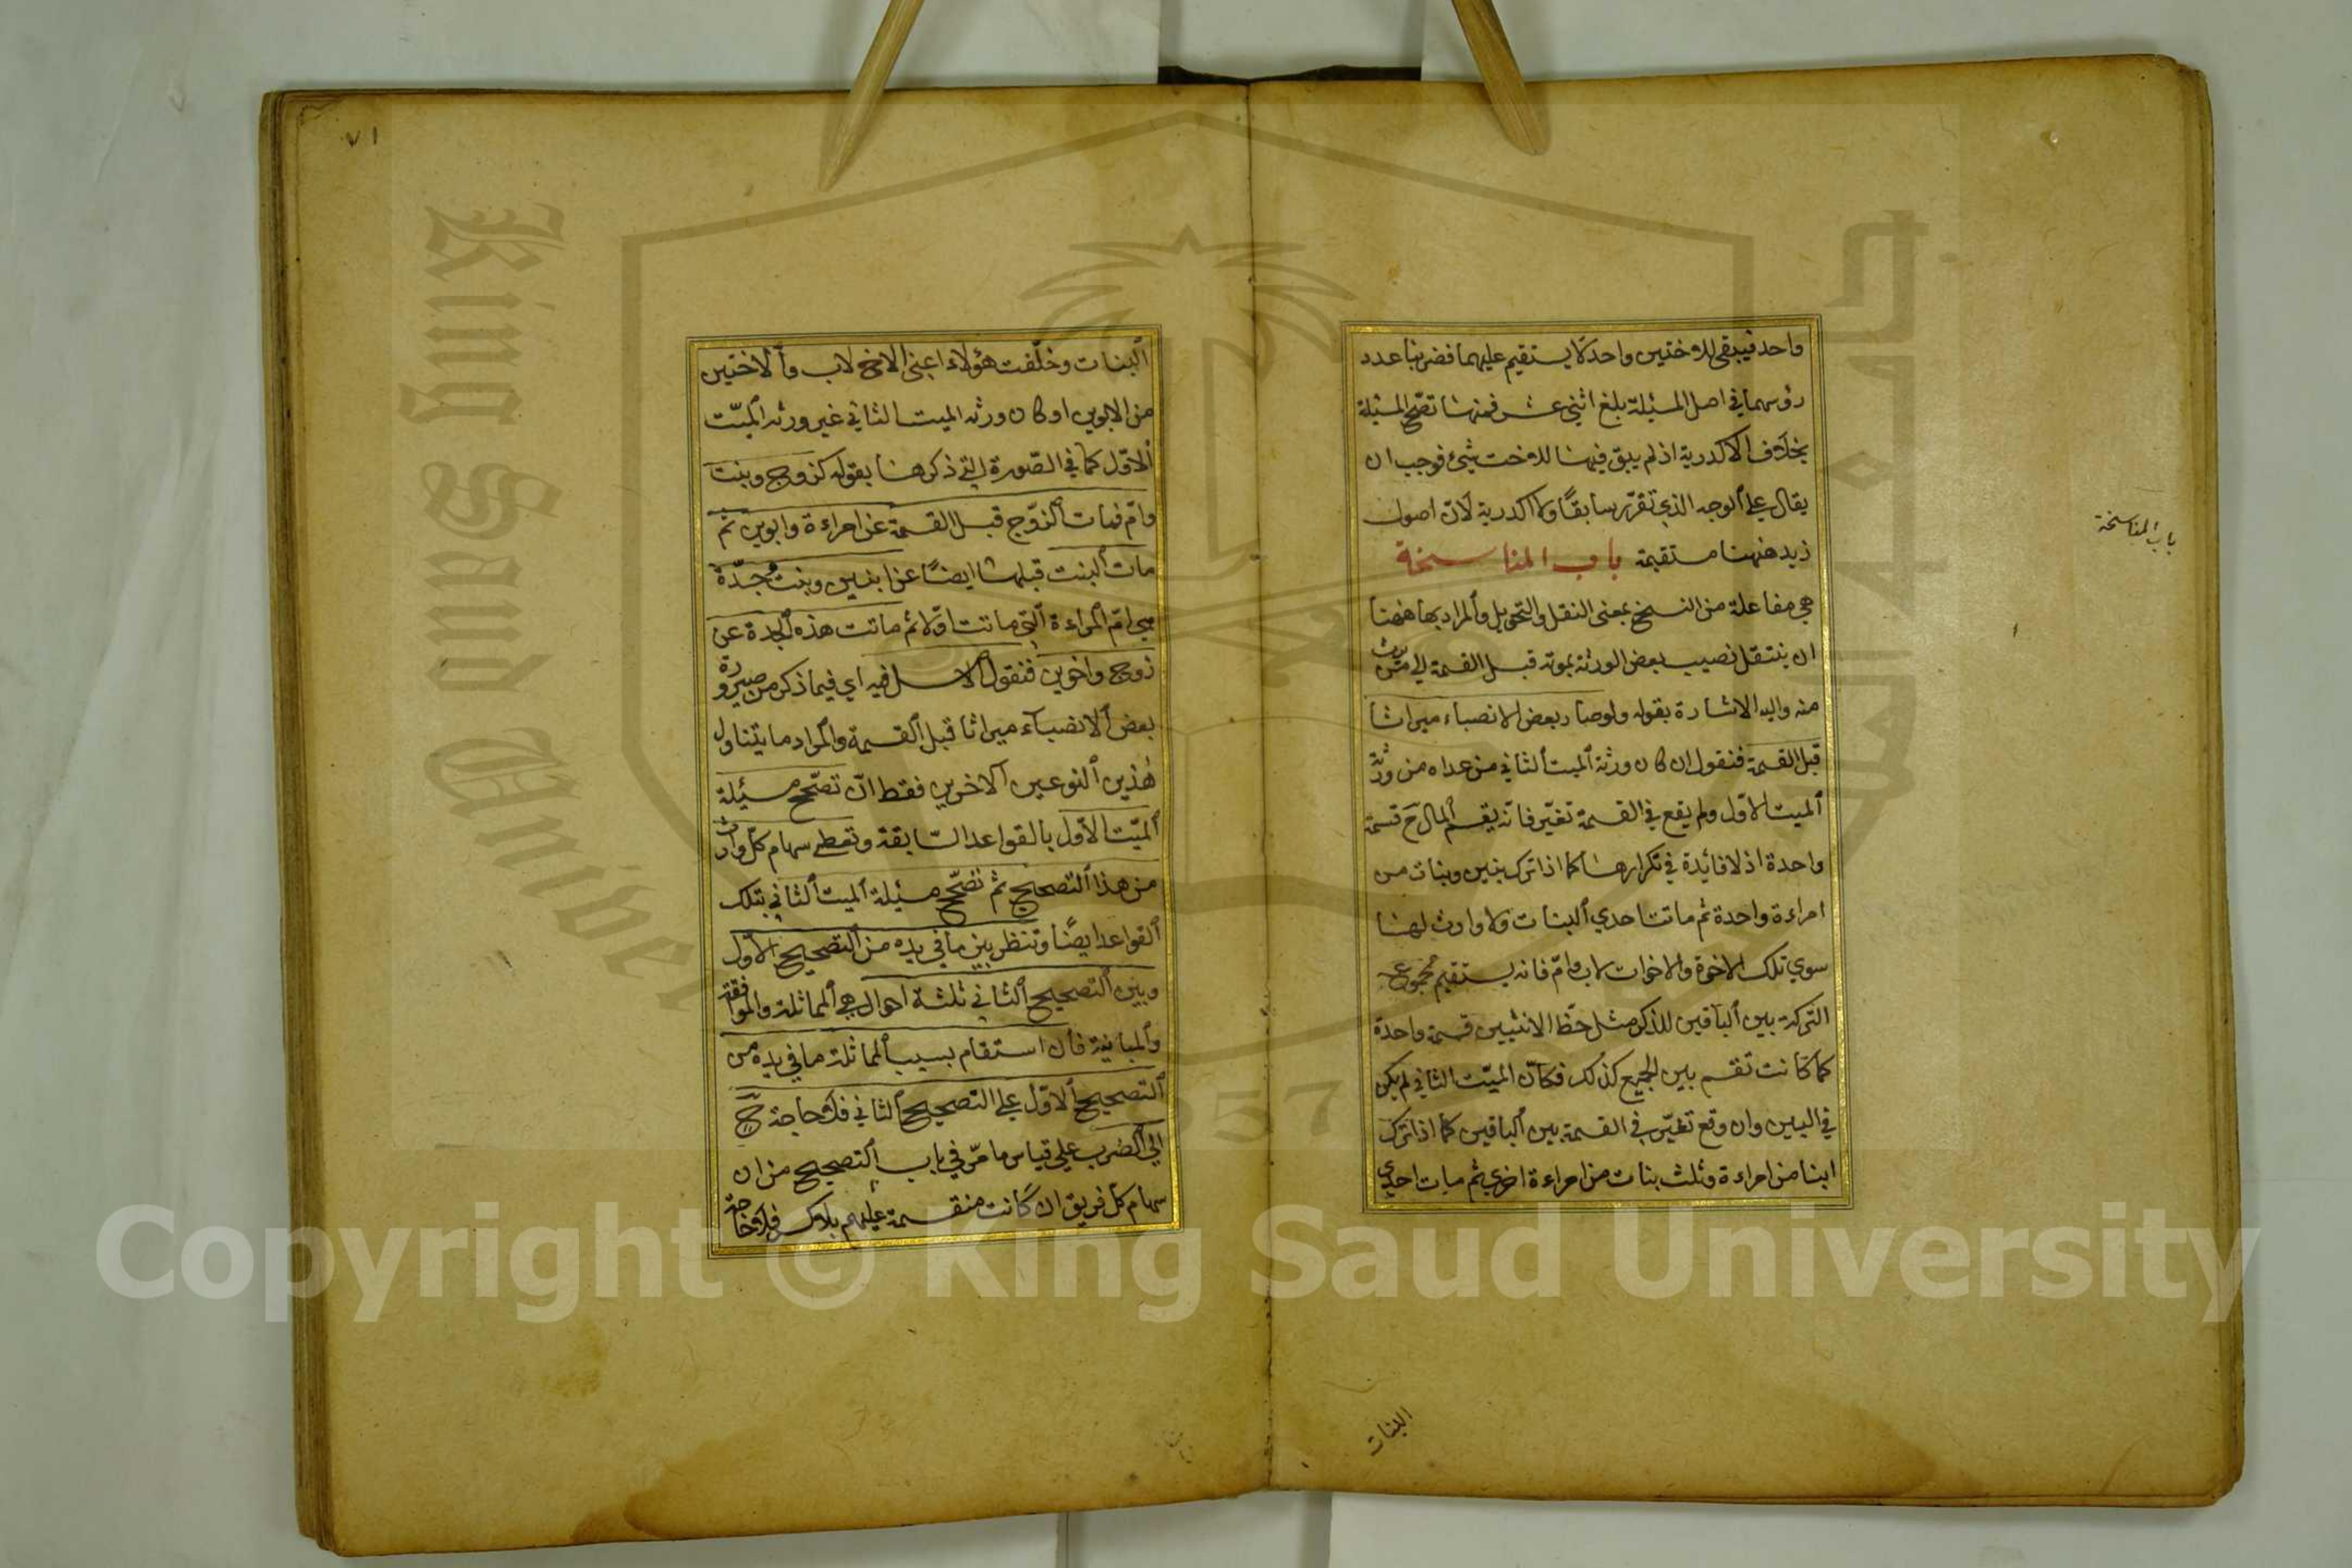 واحد فيبقى للاختين واحد لا يستقيم عليهما فضربنا عدد
رؤسهما في اصل المسئلة بلغ اثنى عشر فمنها تصح المسئلة
بخلاف الاكدرية اذ لم يبق فيها للاخت شئ فوجب ان
يقال على الوجه الذي تقرّر سابقًا ولا اكدرية لانّ اصول
زيد ههنا مستقيمة باب المناسخة
هي مفاعلة من النسخ بمعنى النقل والتحويل والمراد بها ههنا
ان ينتقل نصيب بعض الورثة بموته قبل القسمة الى من يرث
منه واليه الاشارة بقوله ولو صار بعض الانصباء ميراثا
قبل القسمة فنقول ان كان ورثة الميت الثاني من عداه من ورثة
الميت الاوّل ولم يقع في القسمة تغيّر فانه يقسم المال ح قسمة
واحدة اذ لا فائدة في تكرارها كما اذا ترك بنين وبنات من
امراءة واحدة ثم ماتت احدي البنات ولا وارث لها
سوي تلك الاخوة والاخوات لاب وامّ فانه يستقيم مجموع
التركة بين الباقين للذكر مثل حظ الانثيين قسمة واحدة
كما كانت تقسم بين الجميع كذلك فكانّ الميّت الثاني لم يكن
في البين وان وقع تغيّر في القسمة بين الباقين كما اذا ترك
ابنا من امراءة وثلث بنات من امراءة اخرى ثم مات احدي
باب المناسخة
البنات
٧١
البنات وخلّفت هؤلاء اعني الاخ لاب والاختين
من الابوين او كان ورثة الميت الثاني غير ورثة الميّت
الاوّل كما في الصّورة التي ذكرها بقوله كزوج وبنت
وامّ فمات الزوّج قبل القسمة عن امراءة وابوين ثم
مات البنت قبلها ايضًا عن ابنين وبنت وجدّة
هي امّ المراءة الّتي ماتت اوّلا ثم ماتت هذه الجدة عن
زوج واخوين فنقول الاصل فيه اي فيما ذكر من صيرورة
بعض الانصباء ميراثا قبل القسمة والمراد ما يتناول
هذين النوعين الاخرين فقط انّ تصّحح مسئلة
الميّت الاوّل بالقواعد السّابقة وتعطى سهام كلّ وارث
من هذا التصحيح ثم تصّحح مسئلة الميت الثاني بتلك
القواعد ايضًا وتنظر بين ما في يده من التصحيح الاوّل
وبين التصحيح الثاني ثلثة احوال هي المماثلة والموافقة
والمباينة فان استقام بسبب المماثلة ما في يده من
التصحيح الاوّل على التصحيح الثاني فلا حاجة ح
الي الضرب علي قياس ما مرّ في باب التصحيح من ان
سهام كل فريق ان كانت منقسمة عليهم بلا كسر فلا حاجة
King Saud University
1957
Copyright © King Saud University